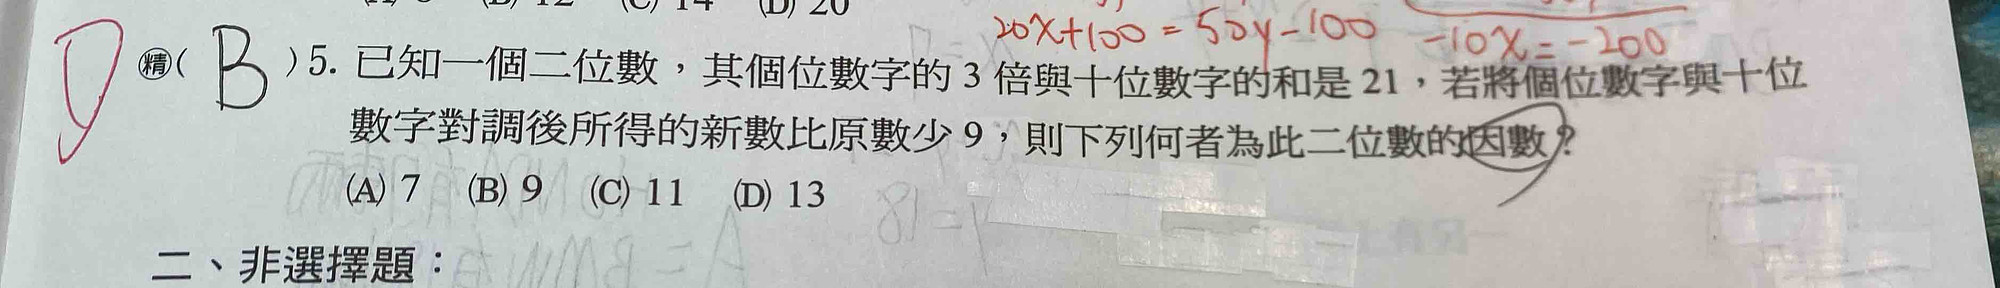 (A) 8 (B) 12 (C) 14 (D) 20
20x+100=50y-100
-10x=-200
D 精( B )5. 已知一個二位數，其個位數字的 3 倍與十位數字的和是 21，若將個位數字與十位
數字對調後所得的新數比原數少 9，則下列何者為此二位數的因數？
(A) 7 (B) 9 (C) 11 (D) 13
二、非選擇題：